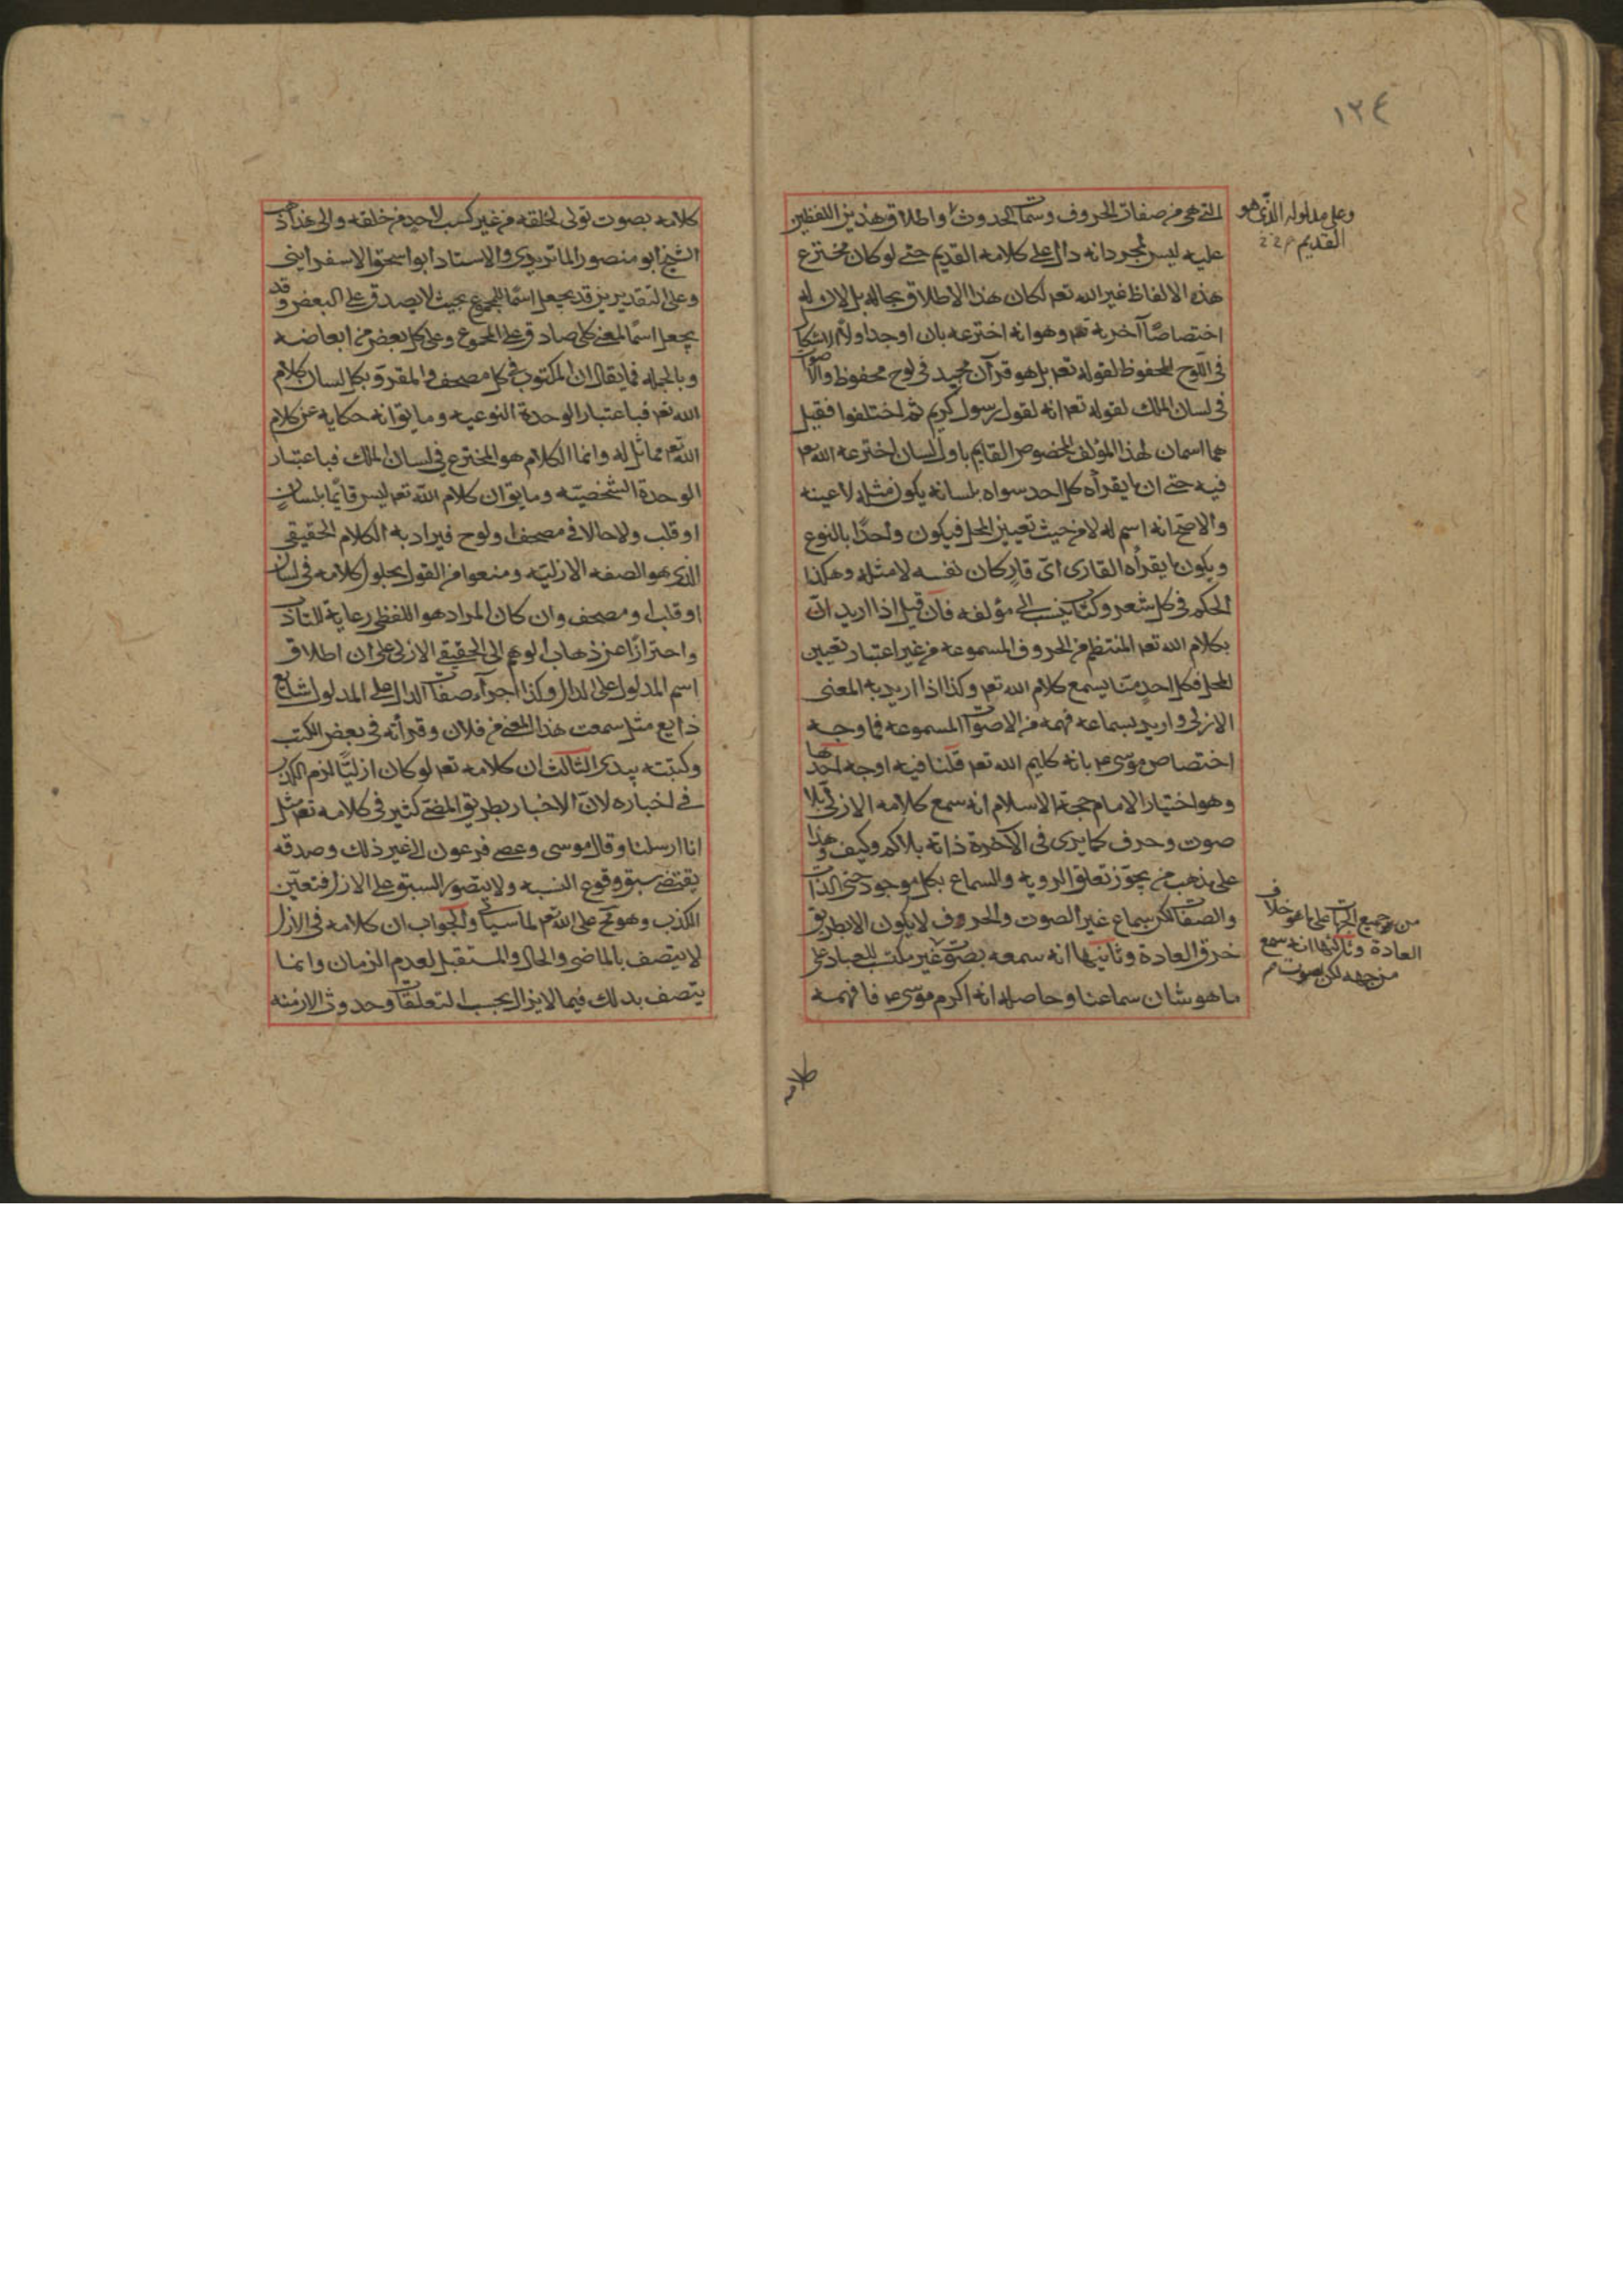 ١٢٤
التى هى من صفات الحروف وسمات الحدوث واطلاق هذين اللفظين
عليه ليس لمجرد انه دال على كلامه القديم حتى لو كان مخترع
هذه الالفاظ غير الله تعم لكان هذا الاطلاق بحاله بل لان له
اختصاصًا آخر به تعم وهو انه اخترعه بان اوجد اولا الاشكال
فى اللوح المحفوظ لقوله تعم بل هو قرآن مجيد فى لوح محفوظ والاصوات
فى لسان الملك لقوله تعم انه لقول رسول كريم ثم اختلفوا فقيل
هما اسمان لهذا المؤلف المخصوص القايم باول لسان اخترعه الله تعم
فيه حتى ان ما يقرأه كل احد سواه بلسانه يكون مثله لا عينه
والاصح انه اسم له لا من حيث تعيين المحل فيكون واحدًا بالنوع
ويكون ما يقرأه القارى اىّ قارٍ كان نفسه لا مثله وهكذا
الحكم فى كل شعر وكتاب ينسب الى مؤلفه فان قيل اذا اريد
بكلام الله تعم المنتظم من الحروف المسموعه من غير اعتبار تعيين
المحل فكل احدٍ منّا يسمع كلام الله تعم وكذا اذا اريد به المعنى
الازلى واريد بسماعه فهمه من الاصوات المسموعه فما وجه
اختصاص موسى عم بانه كليم الله تعم قلنا فيه اوجه احدها
وهو اختيار الامام حجة الاسلام انه سمع كلامه الازلى بلا
صوت وحرف كما يرى فى الآخرة ذاته بلا كم وكيف وهذا
على مذهب من يجوّز تعلق الرويه والسماع بكل موجود حتى الذات
والصفات لكن سماع غير الصوت والحروف لا يكون الا بطريق
خرق العادة وثانيها انه سمعه بصوت غير مكتسب للعباد على
ما هو شان سماعنا وحاصله انه اكرم موسى عم فافهمه
وعلى مدلوله الذى هو
القديم
من جميع الجهات على ما هو خلاف
العادة وثالثها انه سمع
من جهه لكن بصوت
كلامه بصوت تولى لخلقه من غير كسب لاحدٍ من خلقه والى هذا ذهب
الشيخ ابو منصور الماتريدى والاستاد ابو اسحق الاسفراينى
وعلى التقديرين قد يجعل اسمًا للمجموع بحيث لا يصدق على البعض وقد
يجعل اسمًا لمعنى كلى صادق على المجموع وعلى كل بعض من ابعاضه
وبالجمله فما يقال ان المكتوب فى كل مصحف والمقرو بكل لسان كلام
الله تعم فباعتبار الوحدة النوعيه وما يقو انه حكايه عن كلام
الله تعم مماثل له وانما الكلام هو المخترع فى لسان الملك فباعتبار
الوحدة الشخصيّه وما يقو ان كلام الله تعم ليس قائمًا بلسانٍ
او قلب ولا حالا فى مصحف او لوح فيراد به الكلام الحقيقى
الذى هو الصفه الازليّه ومنعوا من القول بحلول كلامه فى لسان
او قلب او مصحف وان كان المراد هو اللفظى رعاية للتادب
واحترازًا عن ذهاب الوهم الى الحقيقى الازلى على ان اطلاق
اسم المدلول على الدال وكذا اجرآء صفات الدال على المدلول شايع
ذايع مثل سمعت هذا المعنى من فلان وقرأته فى بعض الكتب
وكتبته بيدى الثالث ان كلامه تعم لو كان ازليًّا لزم الكذب
فى اخباره لانّ الاخبار بطريق المضى كثير فى كلامه تعم مثل
انا ارسلنا وقال موسى وعصى فرعون الى غير ذلك وصدقه
يقتضى سبق وقوع النسبه ولا يتصور السبق على الازل فتعيّن
الكذب وهو مح على الله تعم لما سياتى والجواب ان كلامه فى الازل
لا يتصف بالماضى والحال والمستقبل لعدم الزمان وانما
يتصف بذلك فيما لا يزال بحسب التعلقات وحدوث الازمنه